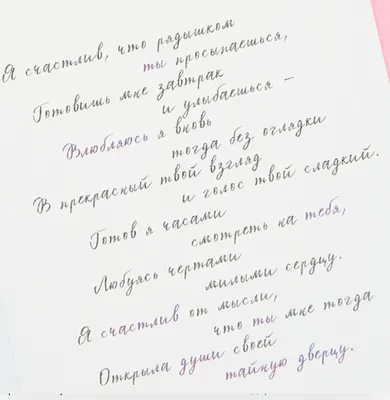 Я счастлив, что рядышком
ты просыпаешься,
Готовишь мне завтрак
и улыбаешься –
Влюбляюсь я вновь
тогда без оглядки
В прекрасный твой взгляд
и голос твой сладкий.
Готов я часами
смотреть на тебя,
Любуясь чертами
милыми сердцу.
Я счастлив от мысли,
что ты мне тогда
Открыла души своей
тайную дверцу.